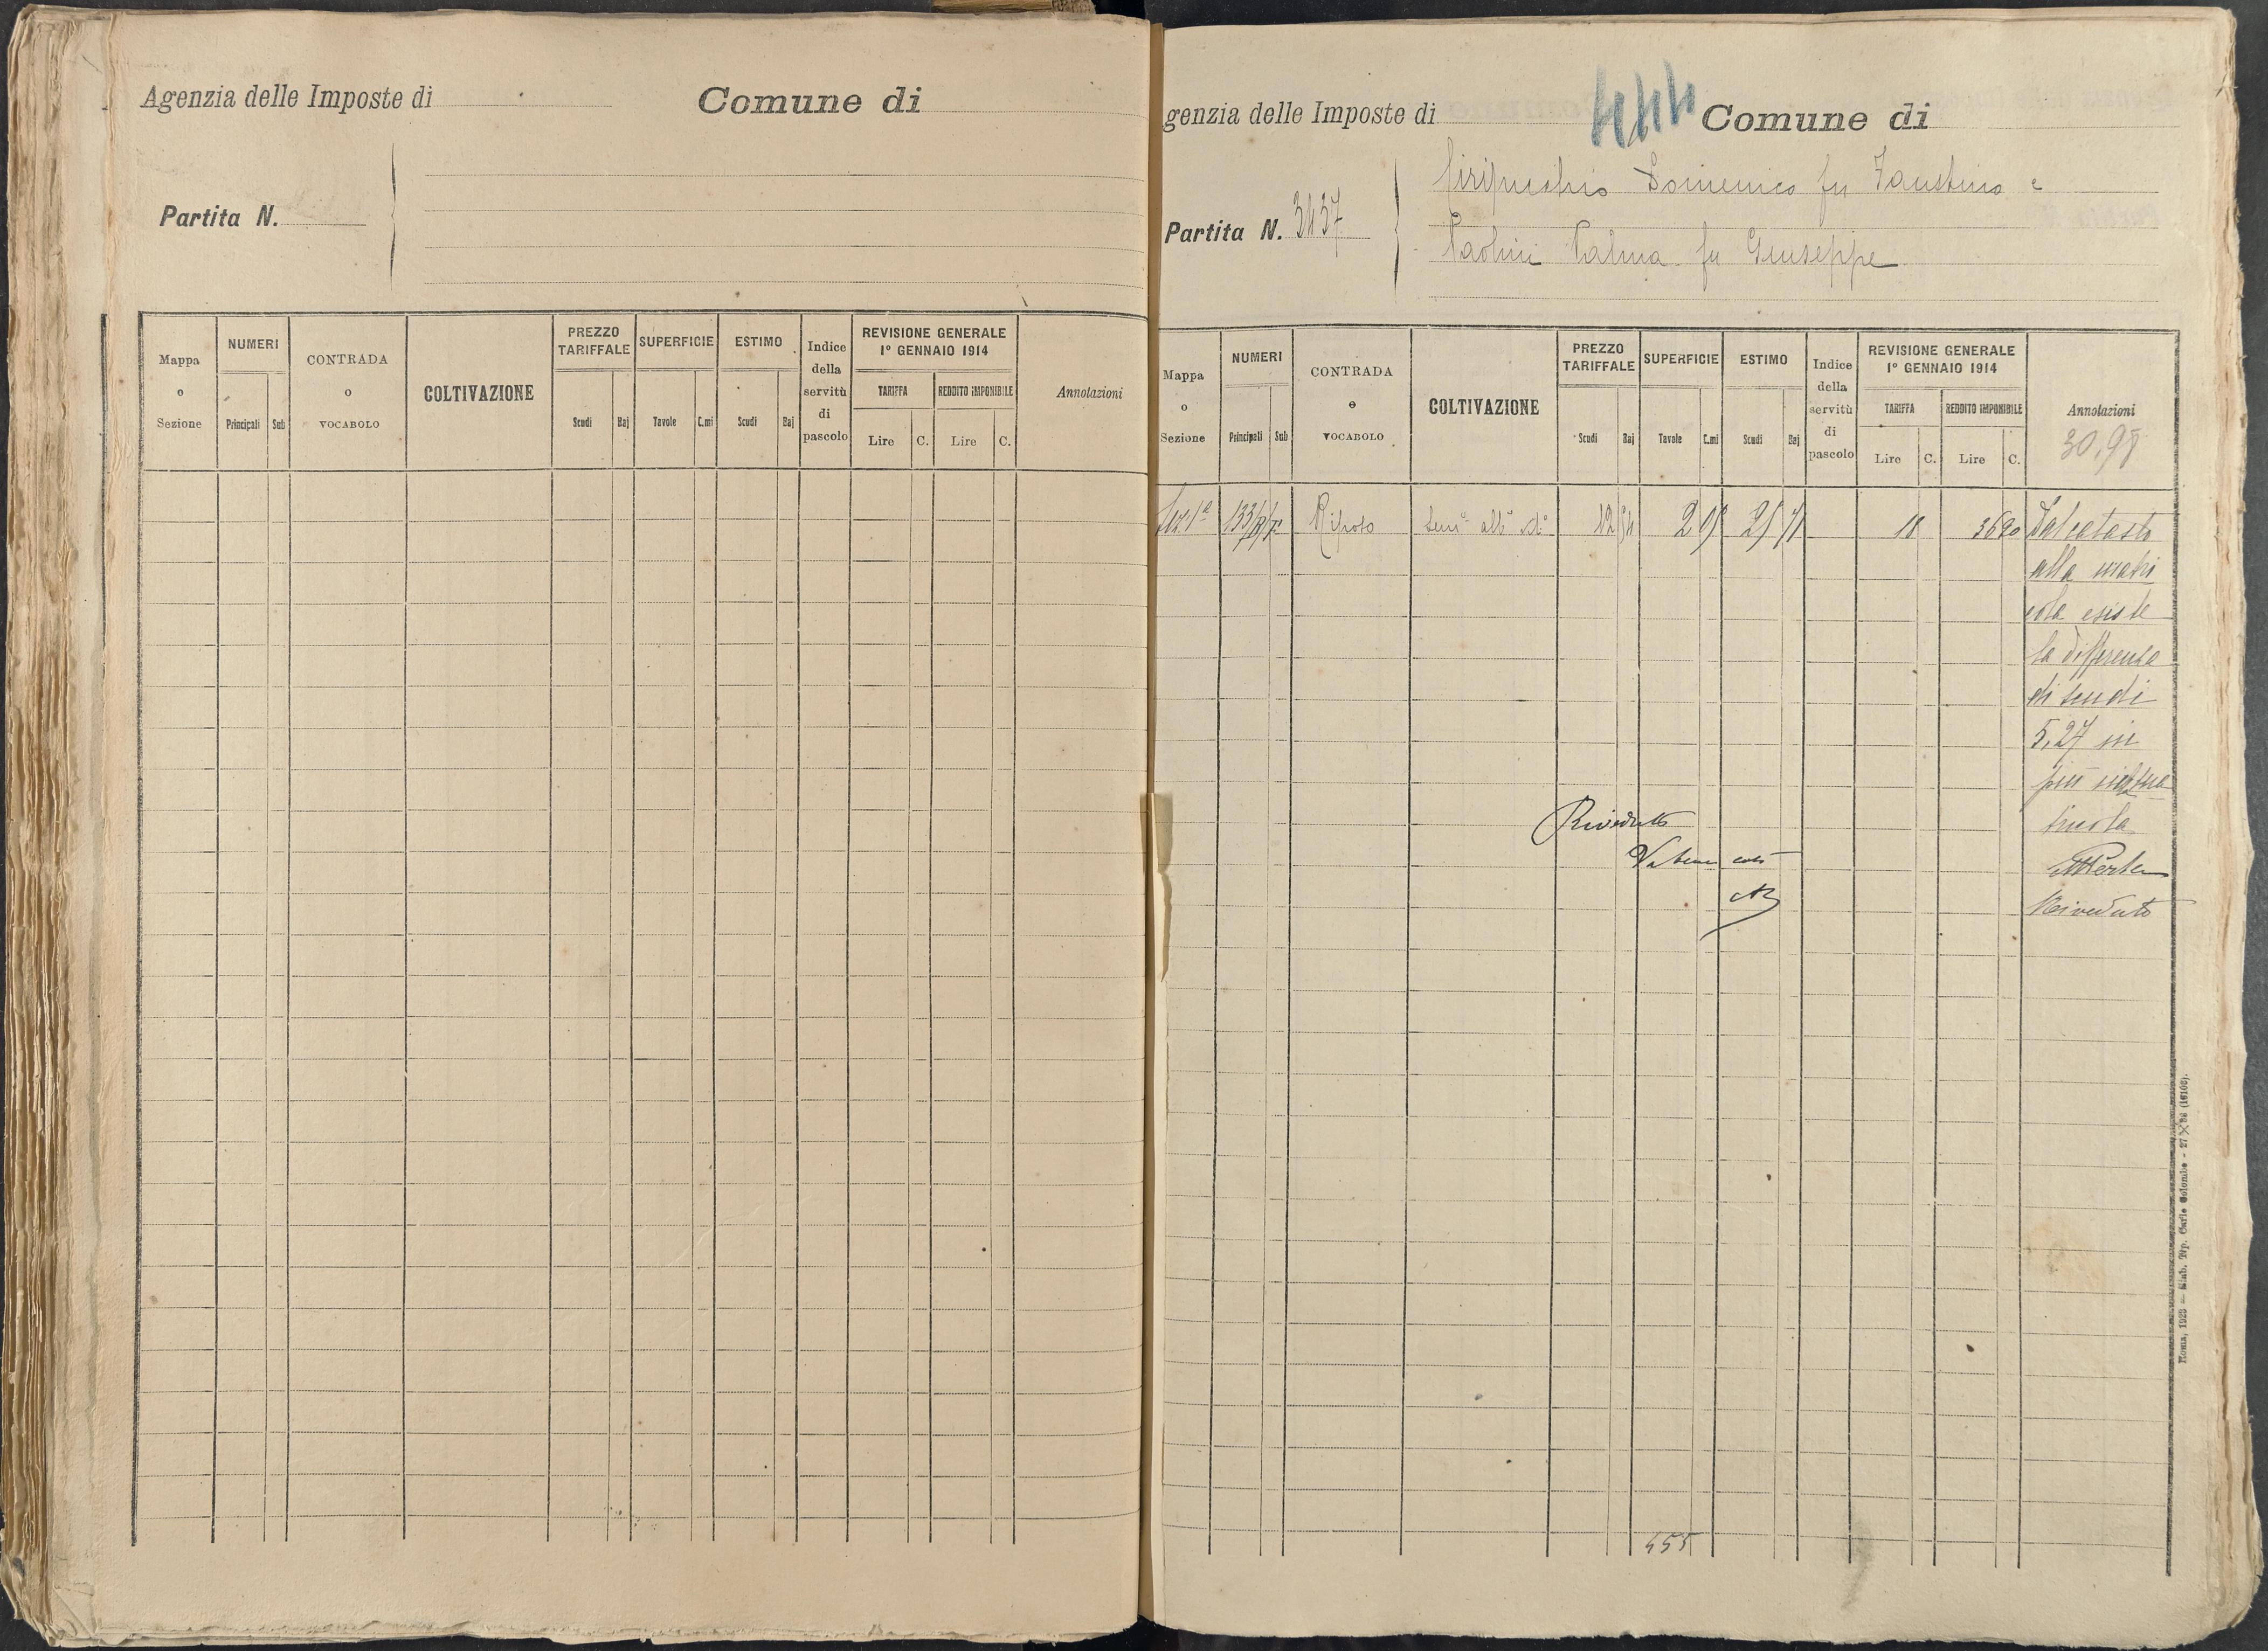 Agenzia delle Imposte di
Comune di
Partita N.
Mappa o Sezione
NUMERI
Principali
Sub
CONTRADA o VOCABOLO
COLTIVAZIONE
PREZZO TARIFFALE
Scudi
Baj
SUPERFICIE
Tavole
C.mi
ESTIMO
Scudi
Baj
Indice della servitù di pascolo
REVISIONE GENERALE
1º GENNAIO 1914
TARIFFA
REDDITO IMPONIBILE
Lire
C.
Lire
C.
Annotazioni
genzia delle Imposte di
444
Comune di
Partita N. 3437
Domenico fu Faustino e
Paolini Palma fu Giuseppe
Mappa o Sezione
NUMERI
Principali
Sub
CONTRADA o VOCABOLO
COLTIVAZIONE
PREZZO TARIFFALE
Scudi
Baj
SUPERFICIE
Tavole
C.mi
ESTIMO
Scudi
Baj
Indice della servitù di pascolo
REVISIONE GENERALE
1º GENNAIO 1914
TARIFFA
REDDITO IMPONIBILE
Lire
C.
Lire
C.
Annotazioni
30,98
Sez. 1ª
18
3690
Dal catasto
alla matri
cola esiste
la differenza
di scudi
5,27 in
più
tricola
Riveduto
Riveduto
Va bene così
455
Roma, 1923 — Stab. Tip. Carlo Colombo